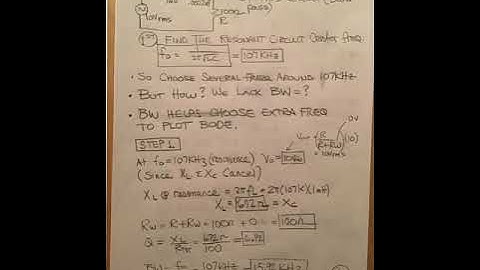 10Vrms
100Ω
R
1ST FIND THE RESONANT CIRCUIT CENTER FREQ.
fo = 1/2π√LC = 107KHz
• SO CHOOSE SEVERAL FREQS AROUND 107KHz
• BUT HOW? WE LACK BW=?
• BW HELPS CHOOSE EXTRA FREQ
TO PLOT BODE.
STEP 1
At fo=107KHz (resonance) Vo=10Vrms
(SINCE XL & XC CANCEL)
XL @ resonance = 2πfL = 2π(107K)(1mH)
XL = 672Ω = XC
RW = R+RW = 100Ω + 0 = 100Ω
Q = XL/RTOT = 672Ω/100 = 6.72
BW = fo = 107KHz = 15.92 KHz